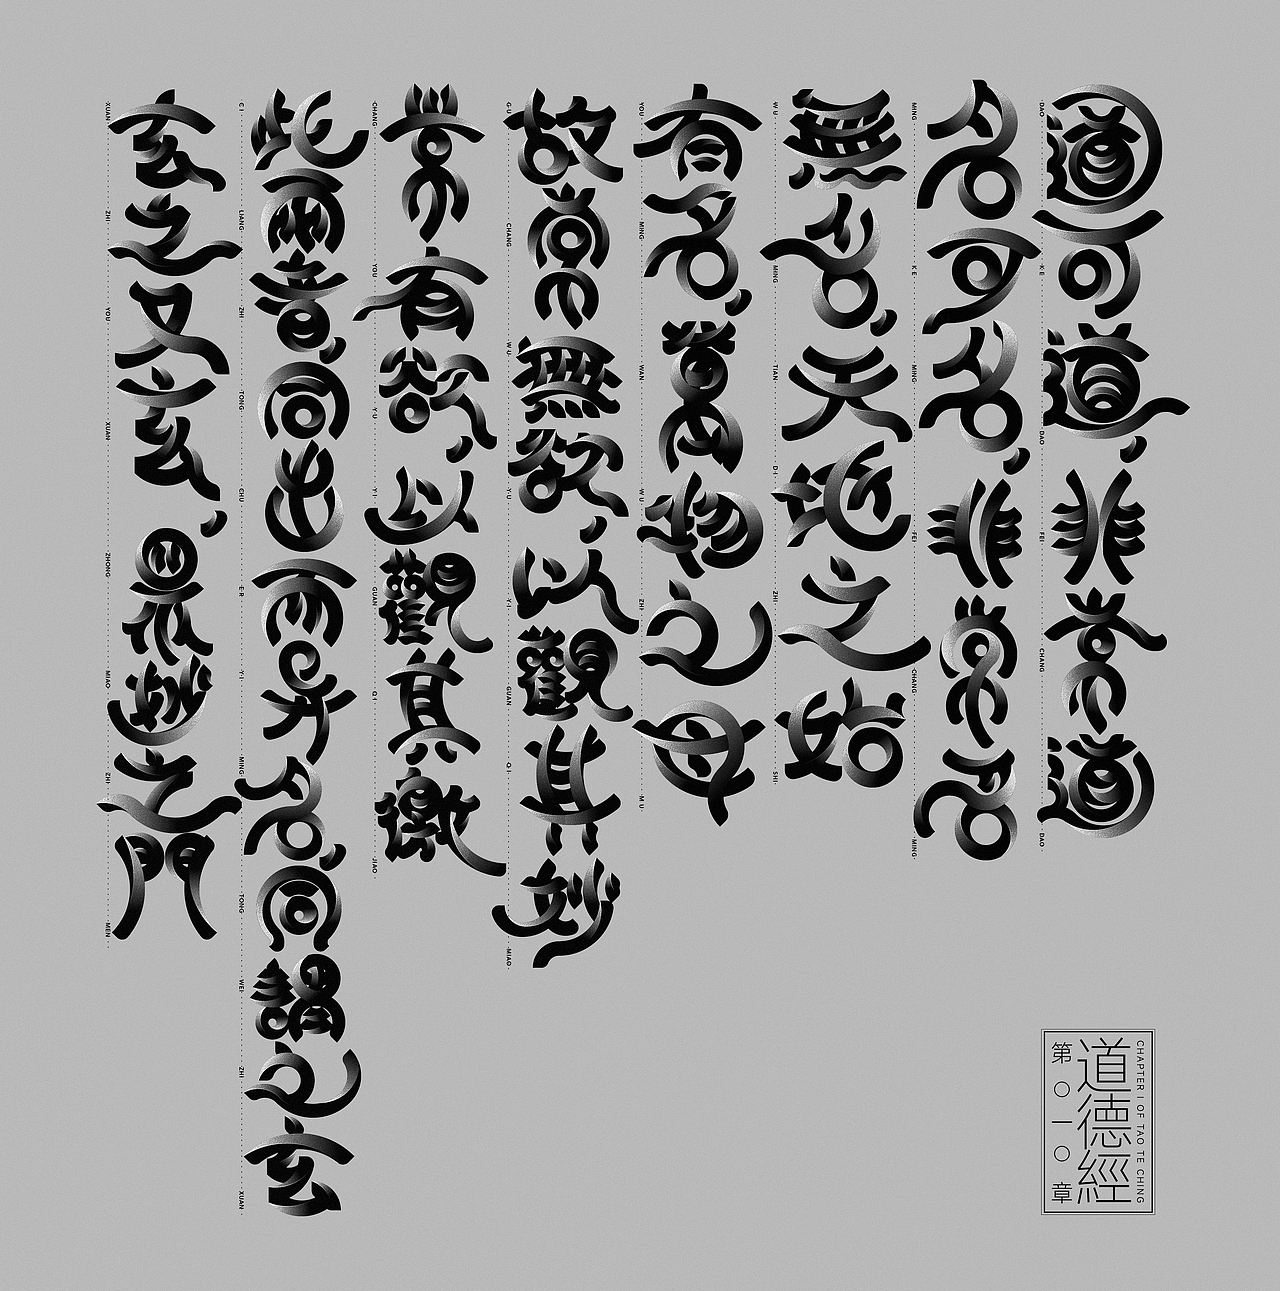 道可道，非常道
DAO · KE · DAO · FEI · CHANG · DAO
名可名，非常名
MING · KE · MING · FEI · CHANG · MING
無名，天地之始
WU · MING · TIAN · DI · ZHI · SHI
有名，萬物之母
YOU · MING · WAN · WU · ZHI · MU
故常無欲，以觀其妙
GU · CHANG · WU · YU · YI · GUAN · QI · MIAO
常有欲，以觀其徼
CHANG · YOU · YU · YI · GUAN · QI · JIAO
此兩者，同出而異名，同謂之玄
CI · LIANG · ZHI · TONG · CHU · ER · YI · MING · TONG · WEI · ZHI · XUAN
玄之又玄，眾妙之門
XUAN · ZHI · YOU · XUAN · ZHONG · MIAO · ZHI · MEN
CHAPTER I OF TAO TE CHING
道德經
第〇一〇章